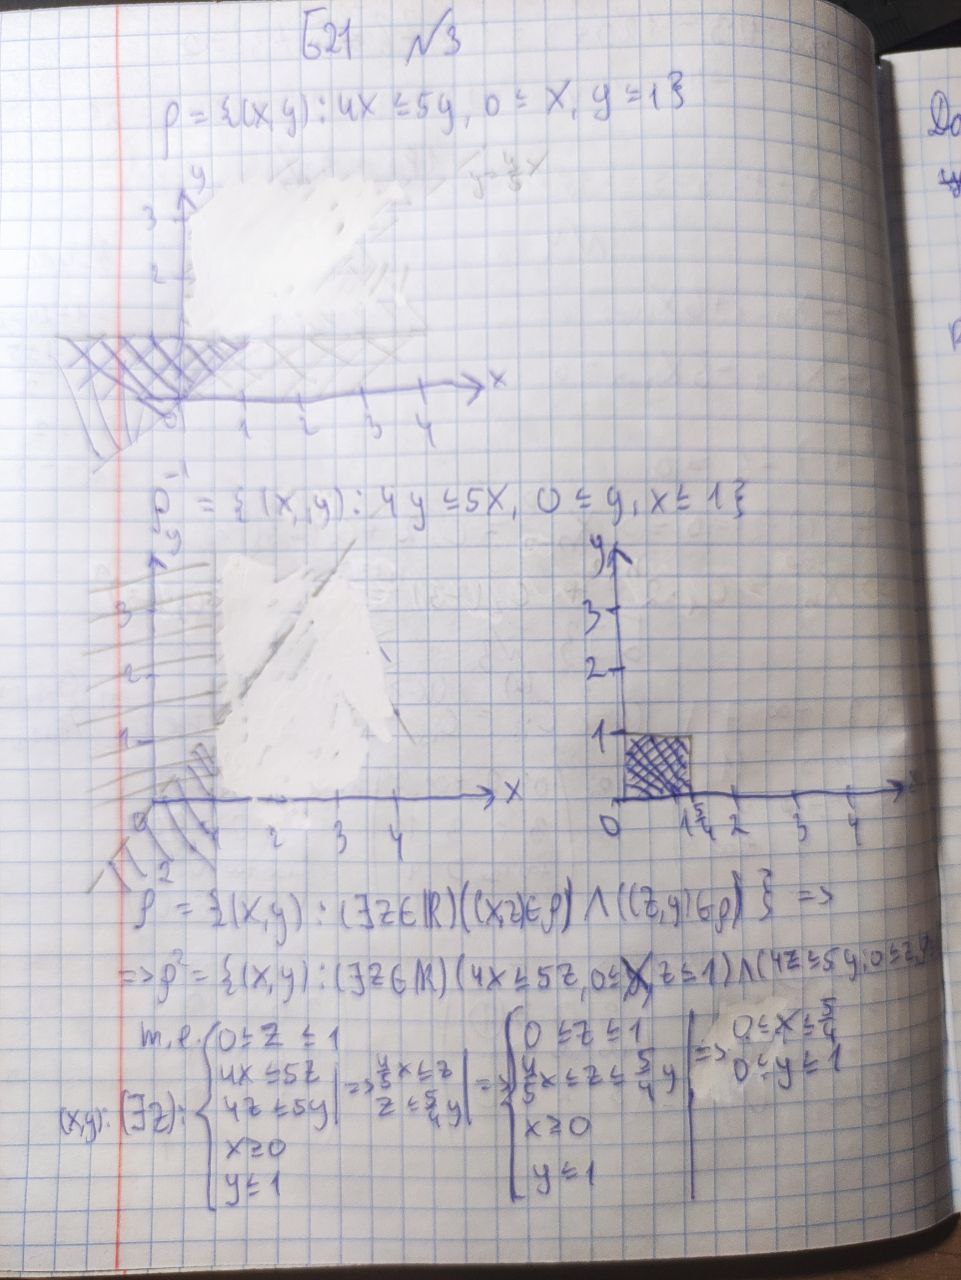 Б21 №3
ρ = {(x,y): 4x ≤ 5y, 0 ≤ x, y ≤ 1}
y
y = 4/5 x
3
2
x
0 1 2 3 4
ρ⁻¹ = {(x,y): 4y ≤ 5x, 0 ≤ y, x ≤ 1}
y
3
2
1
x
0 1 2 3 4
y
3
2
1
0 1 5/4 2 3 4
ρ² = {(x,y): (∃z∈ℝ)((x,z)∈ρ) ∧ ((z,y)∈ρ)} =>
=> ρ² = {(x,y): (∃z∈ℝ)(4x ≤ 5z, 0 ≤ x, z ≤ 1) ∧ (4z ≤ 5y, 0 ≤ z,
т.е.
(x,y): (∃z):
0 ≤ z ≤ 1
4x ≤ 5z
4z ≤ 5y
x ≥ 0
y ≤ 1
=> 4/5 x ≤ z
z ≤ 5/4 y
=>
0 ≤ z ≤ 1
4/5 x ≤ z ≤ 5/4 y
x ≥ 0
y ≤ 1
=> 0 ≤ x ≤ 5/4
0 ≤ y ≤ 1
До